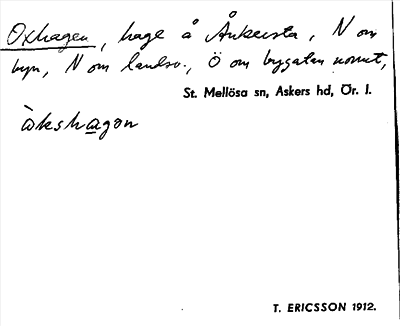 Oxhagen, hage å Ånkersta, N om
byn, N om landsv., Ö om bygatan norrut,
St. Mellösa sn, Askers hd, Ör. l.
òkshagon
T. ERICSSON 1912.